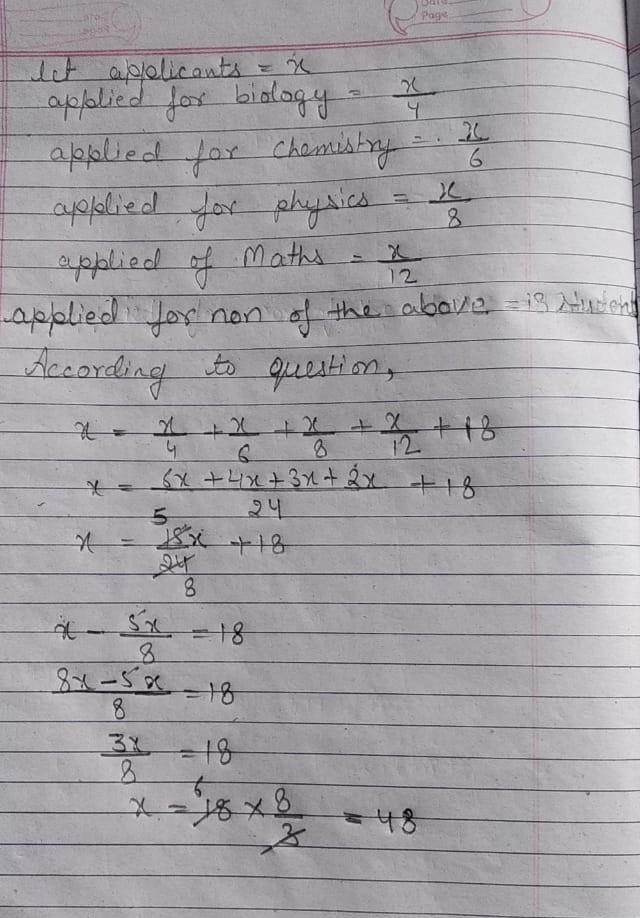 Page
let applicants = x
applied for biology = x/4
applied for chemistry = x/6
applied for physics = x/8
applied of Maths = x/12
applied for non of the above = 18 student
According to question,
x = x/4 + x/6 + x/8 + x/12 + 18
x = 6x + 4x + 3x + 2x / 24 + 18
5
x = 15x/24 + 18
8
x - 5x/8 = 18
8x - 5x / 8 = 18
3x/8 = 18
x = 6 18 × 8/3 = 48